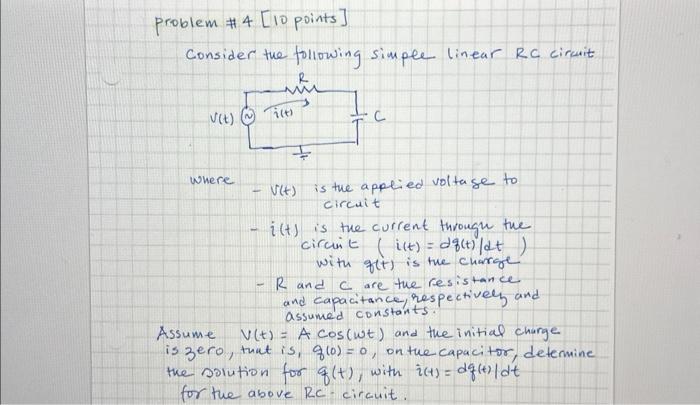 Problem # 4 [10 points]
Consider the following simple linear RC circuit
R
V(t) i(t) C
where
- V(t) is the applied voltage to
circuit
- i(t) is the current through the
circuit ( i(t) = dq(t)/dt )
with q(t) is the charge
- R and C are the resistance
and capacitance, respectively and
assumed constants.
Assume V(t) = A cos(ωt) and the initial charge
is zero, that is, q(0) = 0, on the capacitor, determine
the solution for q(t), with i(t) = dq(t)/dt
for the above RC-circuit.